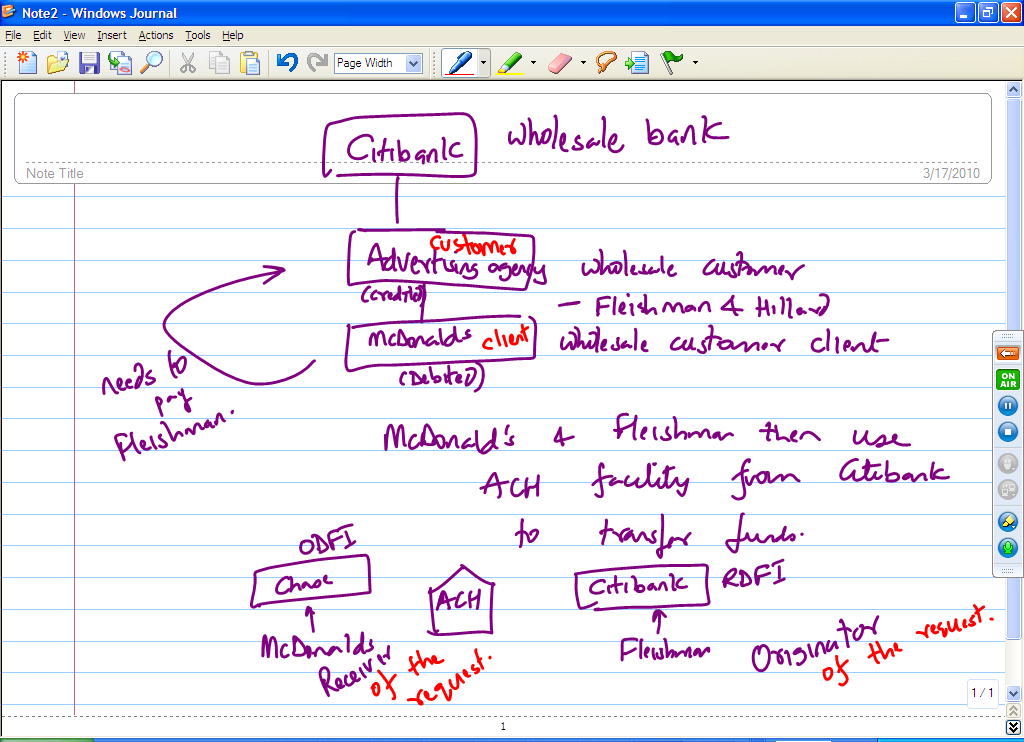 Note2 - Windows Journal
File Edit View Insert Actions Tools Help
Page Width
Citibank wholesale bank
Note Title
3/17/2010
customer
Advertising agency wholesale customer
(credited)
- Fleishman & Hillard
McDonalds client wholesale customer client
(Debited)
needs to
pay
Fleishman.
McDonald's & Fleishman then use
ACH facility from Citibank
to transfer funds.
ODFI
Chase
ACH
Citibank RDFI
McDonalds
Receiver of the request.
Fleishman
Originator of the request.
ON AIR
1 / 1
1